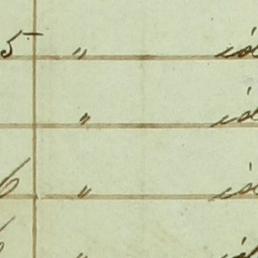 5 " id
" id
6 " id
" id